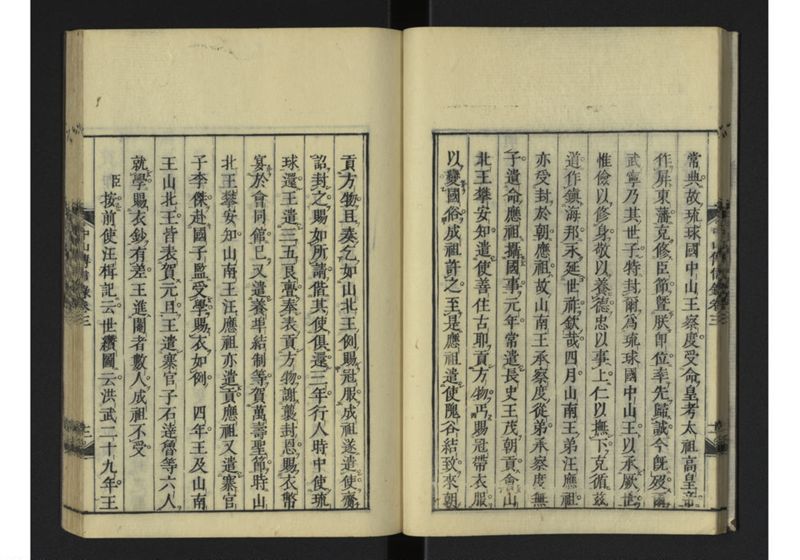 常典故琉球國中山王察度受命皇考太祖高皇帝
作屏東藩克修臣節曁朕卽位率先歸誠今旣歿爾
武寧乃其世子特封爾爲琉球國中山王以承厥世
惟儉以修身敬以養德忠以事上仁以撫下克循茲
道作鎭海邦永延世祚欽哉四月山南王弟汪應祖
亦受封於朝應祖故山南王承察度從弟承察度無
子遺命應祖攝國事元年常遣長史王茂朝貢會山
北王攀安知遣使善住古耶貢方物丐賜冠帶衣服
以變國俗成祖許之至是應祖遣使隗谷結致來朝
貢方物且奏乞如山北王例賜冠服成祖遂遣使齎
詔封之賜如所請偕其使俱還三年行人時中使琉
球還王遣三五良亹奉表貢方物謝襲封恩賜衣幣
宴於會同館已又遣養埠結制等賀萬壽聖節時山
北王攀安知山南王汪應祖亦遣貢應祖又遣寨官
子李傑赴國子監受學賜衣如例　四年王及山南
王山北王皆表賀元旦王遣寨官子石達魯等六人
就學賜衣鈔有差王進閹者數人成祖不受
臣按前使汪楫記云世纘圖云洪武二十九年王
中山傳信錄卷三
中山傳信錄卷三